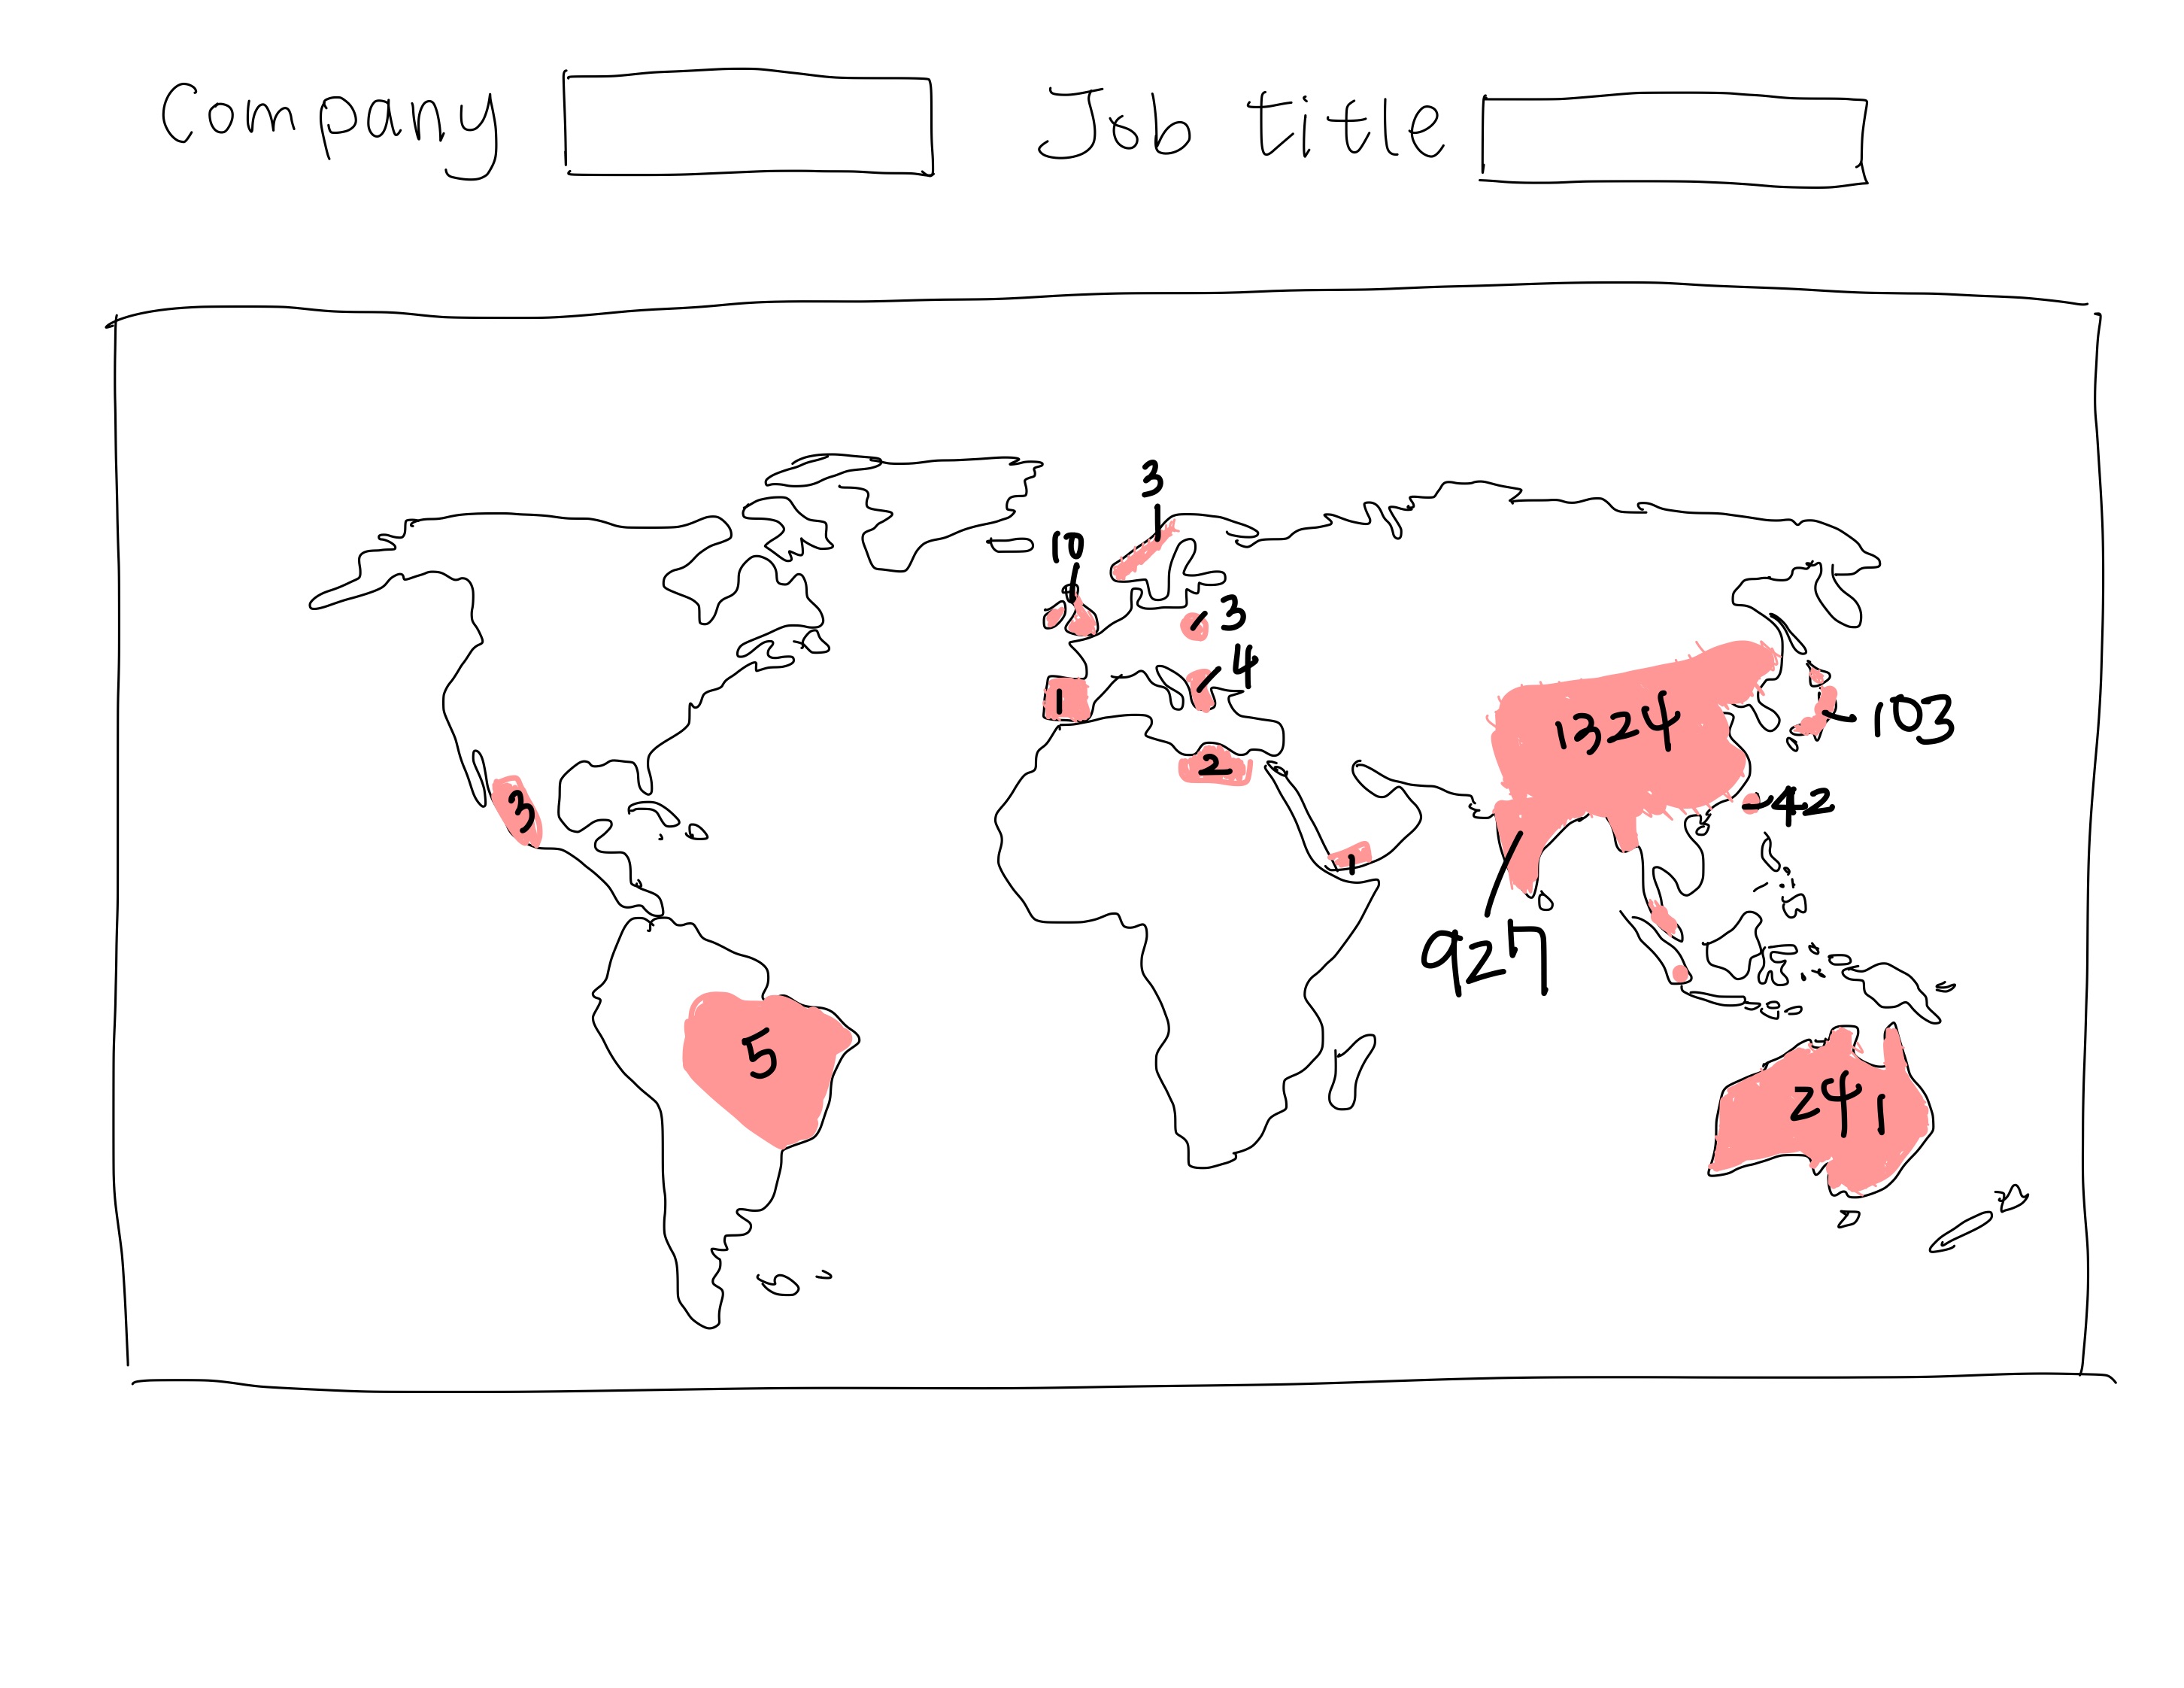 Company Job title
3
10
3
4
1
1324
103
2
3
42
1
927
5
241